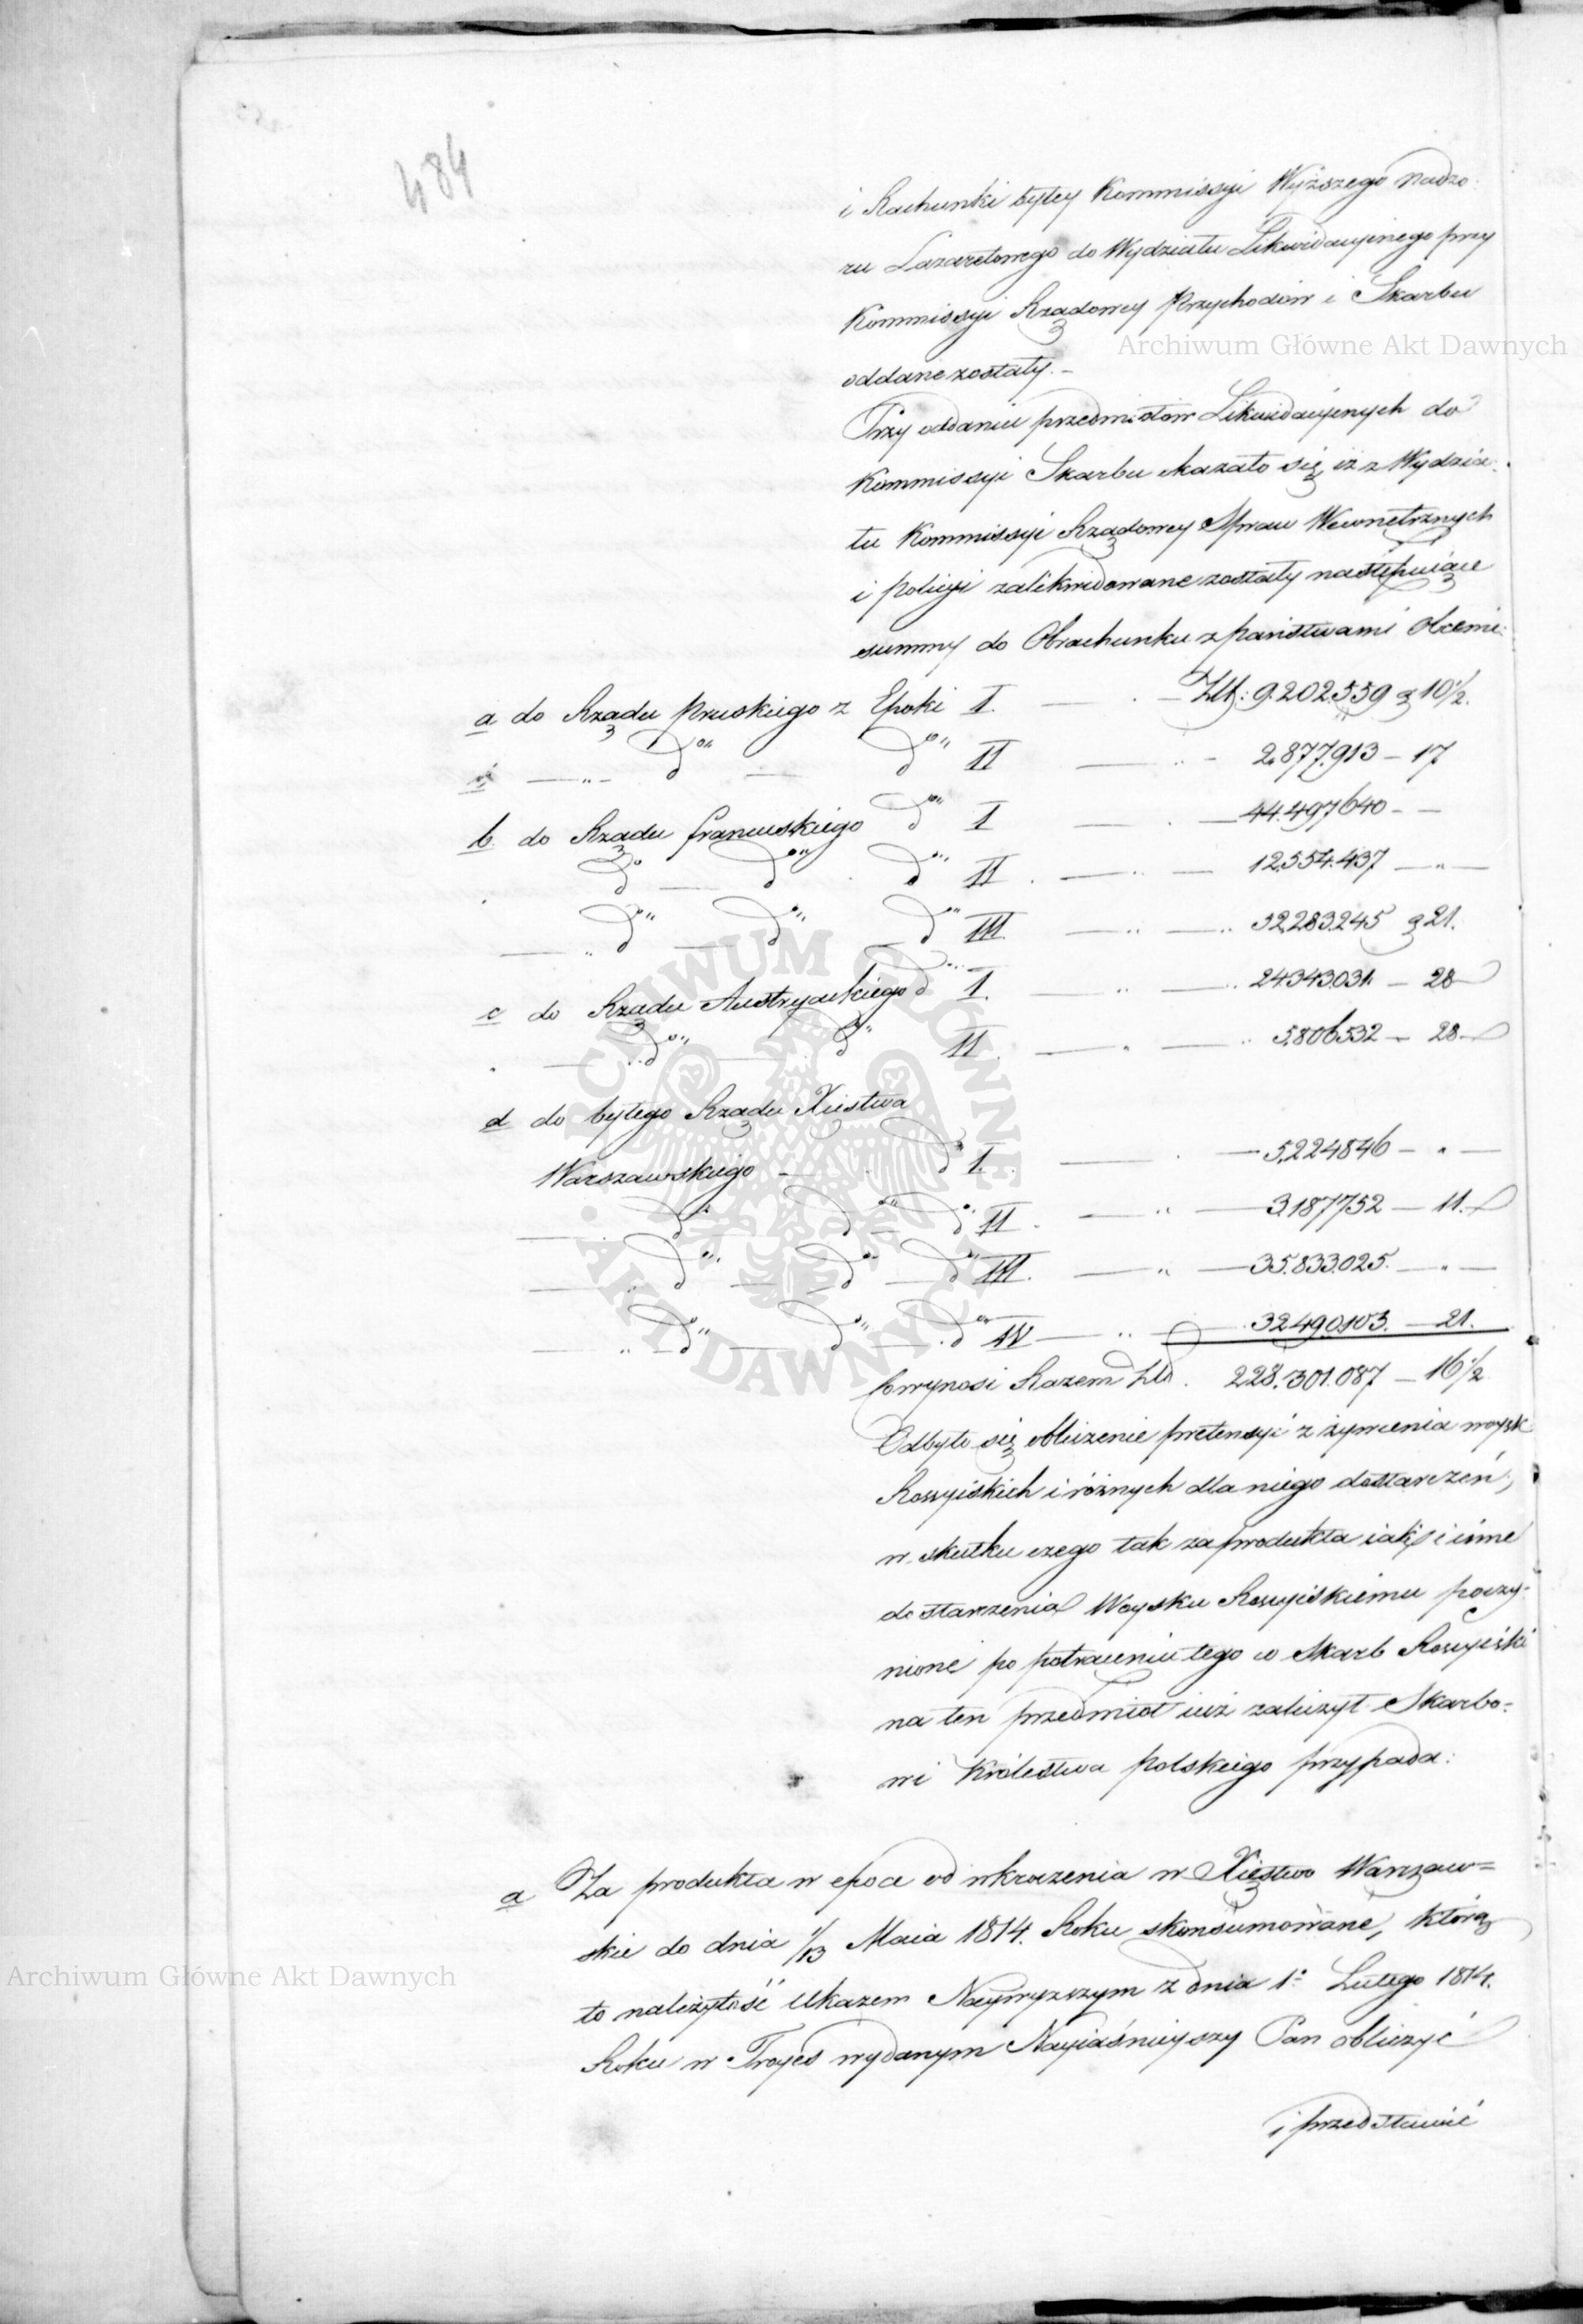 484
i Rachunki byłey Kommissyi Wyższego nadzo:
ru Lazaretowego do Wydziału Likwidacyinego przy
Kommissyi Rządowey Przychodów i Skarbu
Archiwum Główne Akt Dawnych
oddane zostały. –
Przy oddaniu przedmiotów Likwidacyinych do
Kommissyi Skarbu okazało się, iż z Wydzia:
łu Kommissyi Rządowey Spraw Wewnętrznych
i Policyi zalikwidowane zostały następuiące
summy do Obrachunku z państwami obcemi:
a do Rządu Pruskiego z Epoki I. — Złł: 9.202.559 g 10½.
— „ — do„ — do„ II — „ — 2.877.913 – 17
b. do Rządu francuskiego do„ I — . — 44.497.640 – —
do — do„ . do„ II . — „ — 12.554.437 — „ —
— „ do„ — do„ — do„ III. — „ — „ 32.283.245 g 21.
c do Rządu Austryackiego do„ I. — „ — „ 24.343.031. – 28
. — „ do„ — do„ II. — „ — „ 5.806.532 – 28
d do byłego Rządu Xięstwa
Warszawskiego — . do I. — . — 5.224.846 – „ —
— . do„ — do„ — do„ II . — „ — 3.187.752 — 11.
— „ do„ — do„ — do„ III. — „ — 35.833.025. — „ —
— „ — do„ — do„ — do„ IV — „ — 32.490.103. — 21.
Co wynosi Razem Złł. 228.301.087 — 16½
Odbyło się obliczenie pretensyi z żywienia woysk
Rossyiskich i różnych dla niego dostarczeń,
w skutku czego tak za produkta iak i inne
dostarczenia Woysku Rossyiskiemu poczy:
nione po potrąceniu tego co Skarb Rossyiski
na ten przedmiot iuż zaliczył Skarbo:
wi Królestwa Polskiego przypada:
a Za produkta w epoce od wkroczenia w Xięstwo Warszaw=
skie do dnia 1/13 Maia 1814. Roku skonsumowane, którą
Archiwum Główne Akt Dawnych
to należytość Ukazem Naywyższym z dnia 1o Lutego 1814.
Roku w Troyes wydanym Nayiaśnieyszy Pan obliczyć
i przedstawić
ARCHIWUM GŁÓWNE
• AKT DAWNYCH •